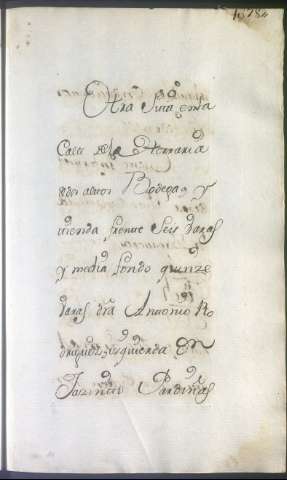 Otra Sita en la
Calle de la Herraria
de dos altos Bodega, y
vivienda frente Seis varas
y media fondo quinze
varas dra Antonio Ro
driguez izquierda Dn
Jazinto Sardinas